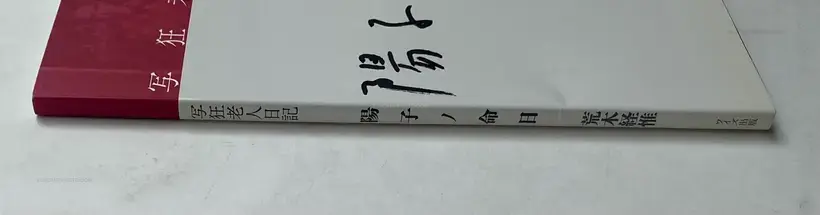 写狂
陽子
写狂老人日記 陽子ノ命日 荒木経惟 ワイズ出版